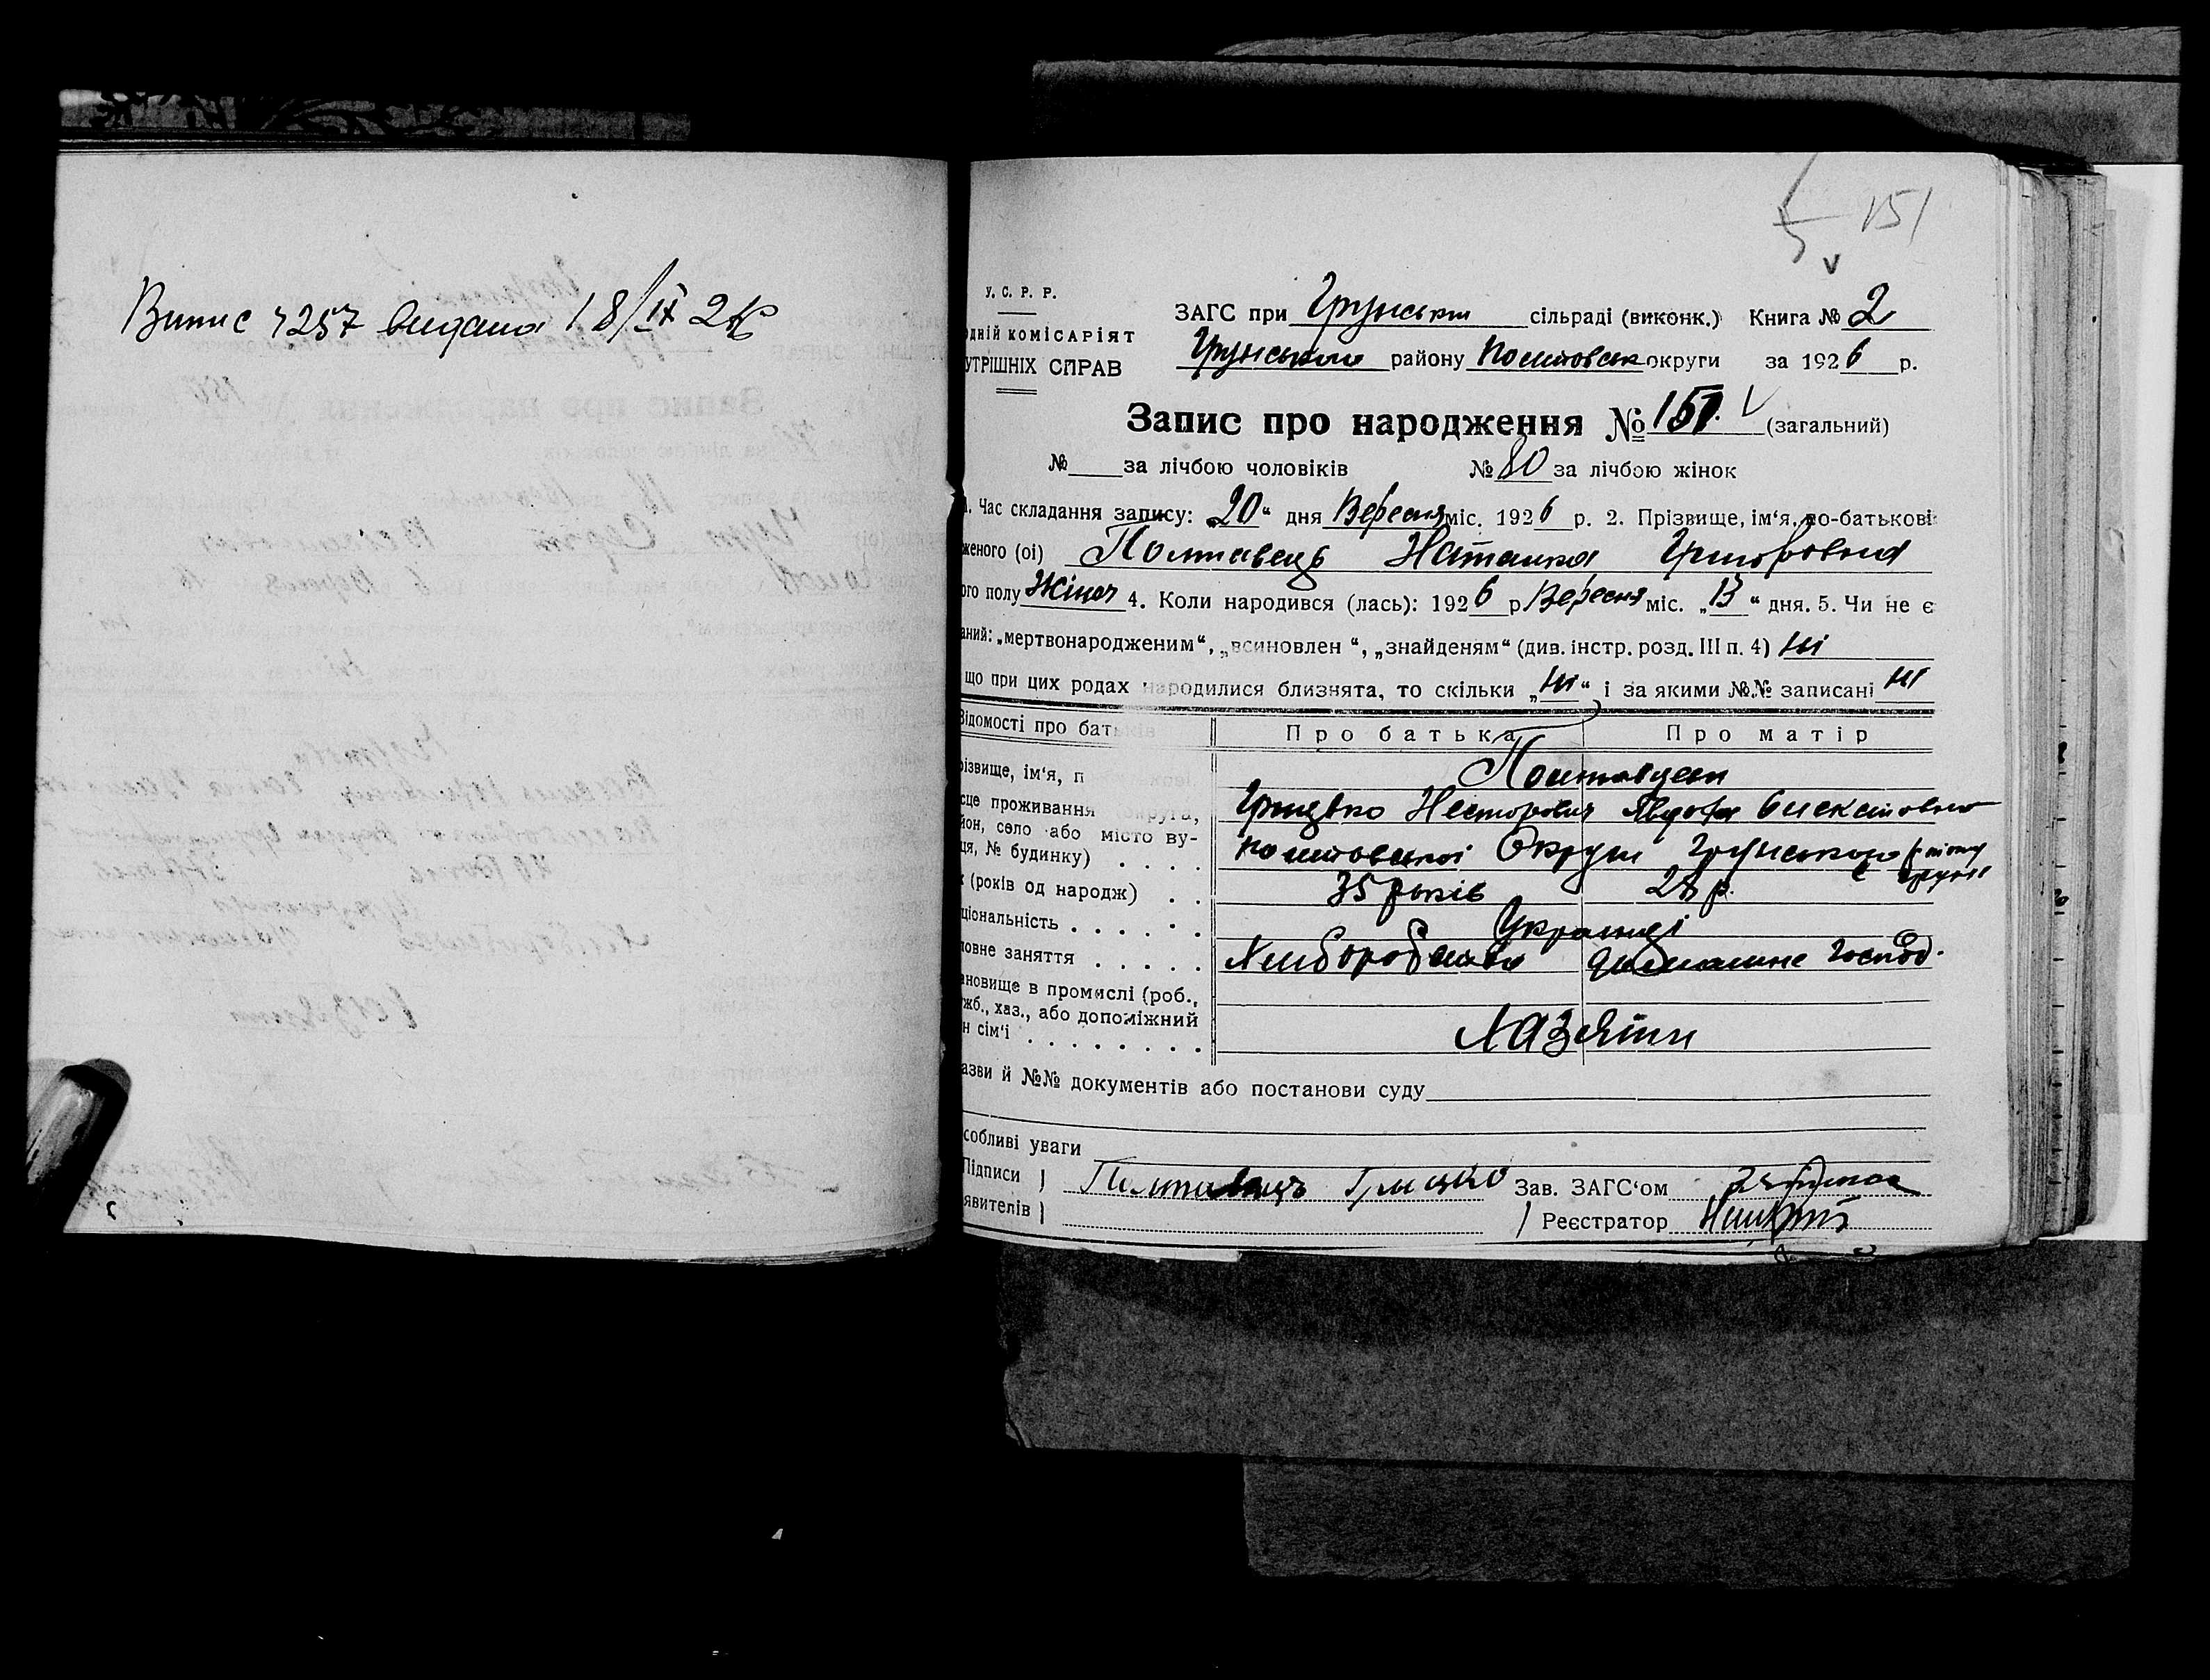 Випис 4257 видана 18/IX 26
151
У. С. Р. Р.
одній комісаріят
утрішніх справ
ЗАГС при Грунськи сільраді (виконк.) Книга № 2
Грунського району Полтовськ округи за 1926 р.
Запис про народження № 151. (загальний)
№ за лічбою чоловіків № 80 за лічбою жінок
1. Час складання запису: „20“ дня Вересня міс. 1926 р. 2. Прізвище, ім‘я, по-батькові
женого (ої) Полтавець Наталка Григоровна
ого полу Жіноч 4. Коли народився (лась): 1926 р Вересня міс. „13“ дня. 5. Чи не є
аний: „мертвонародженим“, „всиновлен “, „знайденям“ (див. інстр. розд. III п. 4) ні
що при цих родах народилися близнята, то скільки „ні“ і за якими №№ записані ні
Відомості про батьків Про батька Про матір
різвище, ім‘я, п Полтавцеви
Грицько Несторович Явдоха
сце проживання округа,
йон, село або місто ву-
ця, № будинку) . . . . Полтовської Округи Грунського
к (років од народж) . . 35 років 28 р.
ціональність . . . . . . Українці
ловне заняття . . . . . Хлиборобство Домашне господ.
ановище в промислі (роб.,
жб., хаз., або допоміжний
н сім‘ї . . . . . . . . Хазяїни
азви й №№ документів або постанови суду
собливі уваги
Підписи Полтавець Грицько Зав. ЗАГС‘ом
явителів Реєстратор